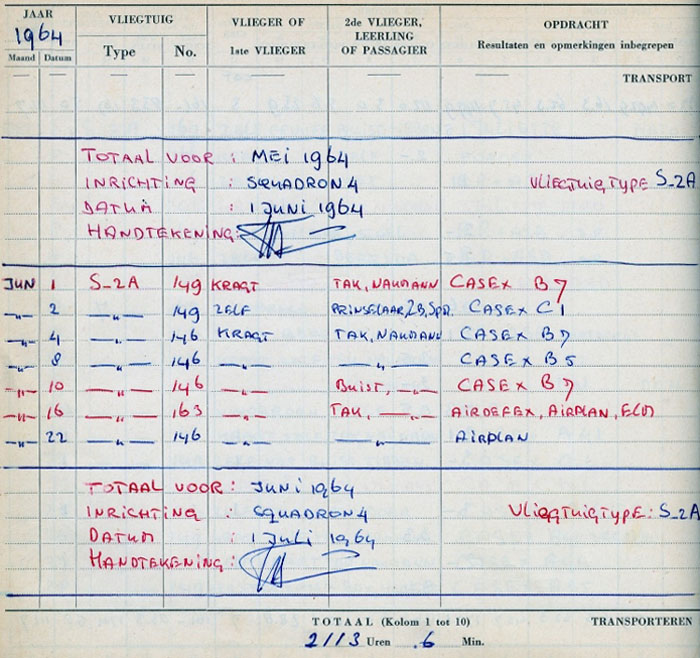 JAAR 1964 VLIEGTUIG VLIEGER OF 1ste VLIEGER 2de VLIEGER, LEERLING OF PASSAGIER OPDRACHT
Maand Datum Type No. Resultaten en opmerkingen inbegrepen
TRANSPORT
TOTAAL VOOR : MEI 1964
INRICHTING : SQUADRON 4 VLIEGTUIGTYPE S_2A
DATUM : 1 JUNI 1964
HANDTEKENING:
JUN 1 S_2A 149 KRAGT TAK, NAUMANN CASEX B7
-„- 2 -„- 149 ZELF PRINSELAAR, ZB, CASEX C1
-„- 4 -„- 146 KRAGT TAK, NAUMANN CASEX B7
-„- 8 -„- 146 -„- -„- CASEX B5
-„- 10 -„- 146 -„- BUIST, -„- CASEX B7
-„- 16 -„- 163 -„- TAK, -„- AIRDEFEX, AIRPLAN,
-„- 22 -„- 146 -„- -„- AIRPLAN
TOTAAL VOOR : JUNI 1964
INRICHTING : SQUADRON 4 VLIEGTUIGTYPE: S_2A
DATUM : 1 JULI 1964
HANDTEKENING:
TOTAAL (Kolom 1 tot 10) TRANSPORTEREN
2113 Uren 6 Min.